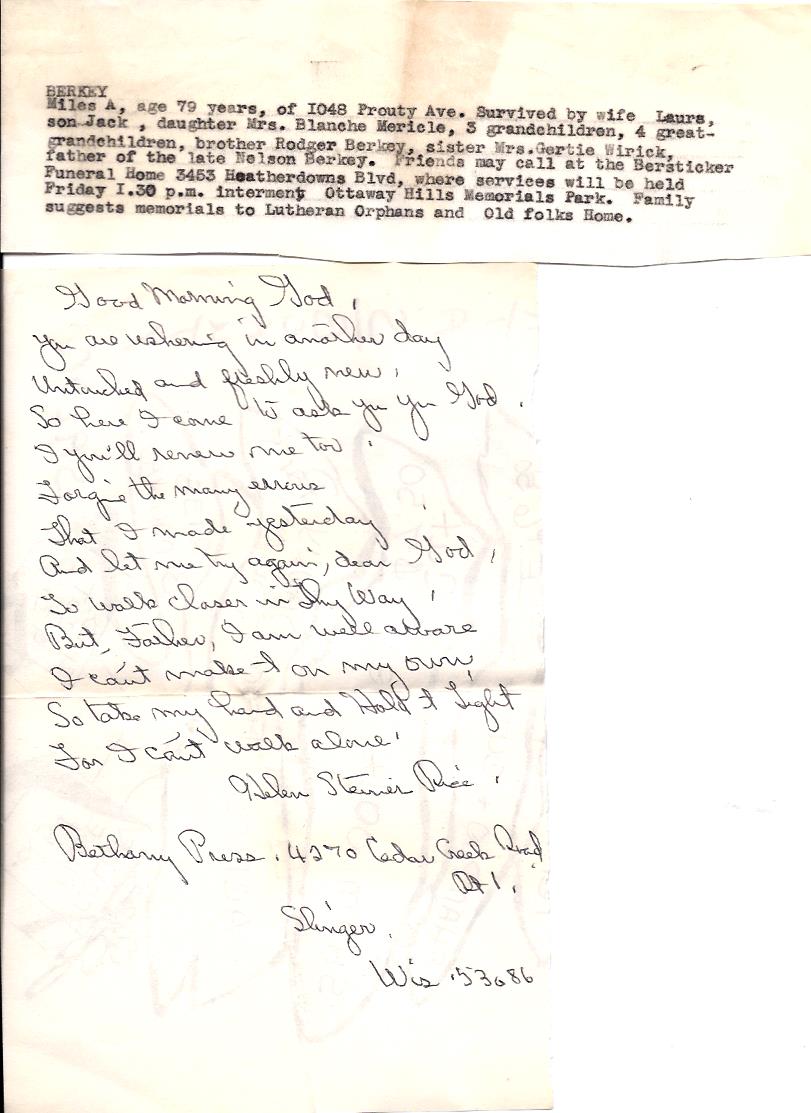 BERKEY
Miles A, age 79 years, of I048 Prouty Ave. Survived by wife Laura,
son Jack , daughter Mrs. Blanche Mericle, 3 grandchildren, 4 great-
grandchildren, brother Rodger Berkey, sister Mrs.Gertie Wirick,
father of the late Nelson Berkey. Friends may call at the Bersticker
Funeral Home 3453 Heatherdowns Blvd, where services will be held
Friday I.30 p.m. interment Ottaway Hills Memorials Park. Family
suggests memorials to Lutheran Orphans and Old folks Home.
Good Morning God,
You are ushering in another day
Untouched and freshly new,
So here I come to ask you God.
I you'll renew me too.
Forgive the many errors
That I made yesterday
And let me try again, dear God,
To walk closer in Thy Way,
But, Father, I am well aware
I can't make it on my own
So take my hand and Hold it Tight
For I can't walk alone.
Helen Steiner Rice.
Bethany Press. 4270 Cedar Creek Road
Rt 1.
Slinger.
Wis. 53086